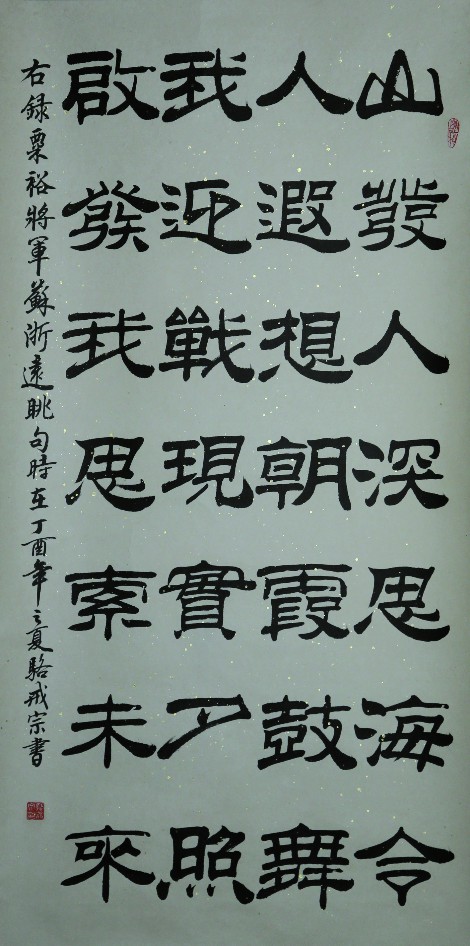 山發人深思海令
人遐想朝霞鼓舞
我迎戰現實夕照
啟發我思索未來
右錄粟裕將軍蘇浙遠眺句時在丁酉年之夏駱戒宗書